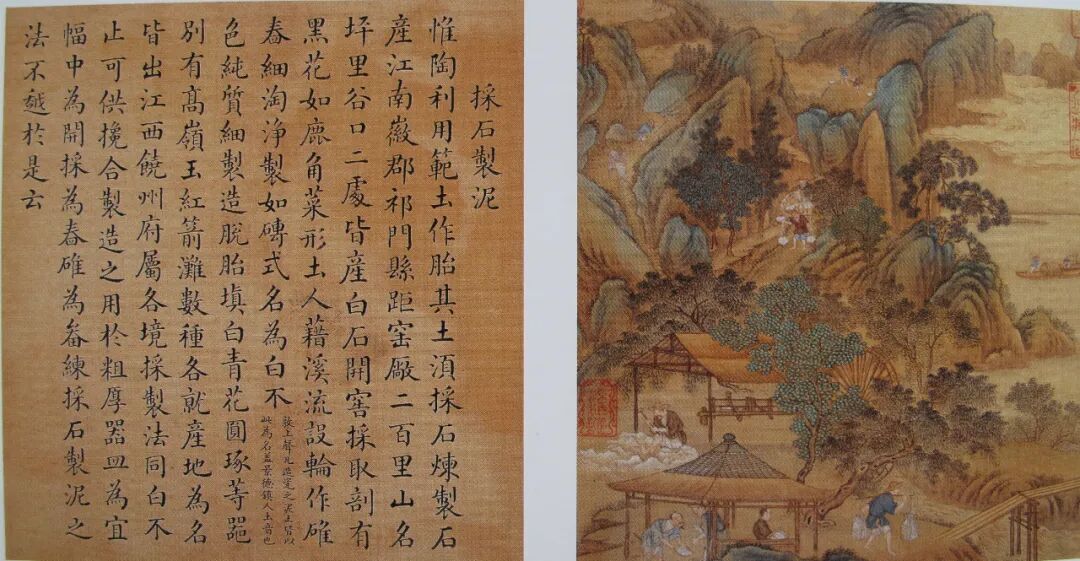 採石製泥
惟陶利用範土作胎其土須採石煉製石
產江南徽郡祁門縣距窑廠二百里山名
坪里谷口二處皆產白石開窖採取剖有
黑花如鹿角菜形土人藉溪流設輪作碓
舂細淘淨製如磚式名為白不
敦上聲凡造瓷之泥土皆以
此為名蓋景德鎮人土音也
色純質細製造脫胎填白青花圓琢等噐
別有髙嶺玉紅箭灘數種各就產地為名
皆出江西饒州府屬各境採製法同白不
止可供攙合製造之用於粗厚器皿為宜
幅中為開採為舂碓為畚練採石製泥之
法不越於是云